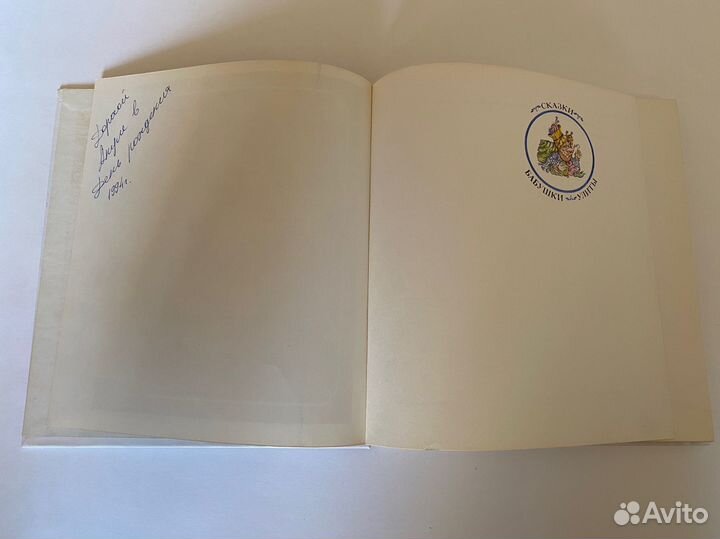 Дорогой
внучке в
День рождения
1994г.
СКАЗКИ
БАБУШКИ УЛИТЫ
Avito